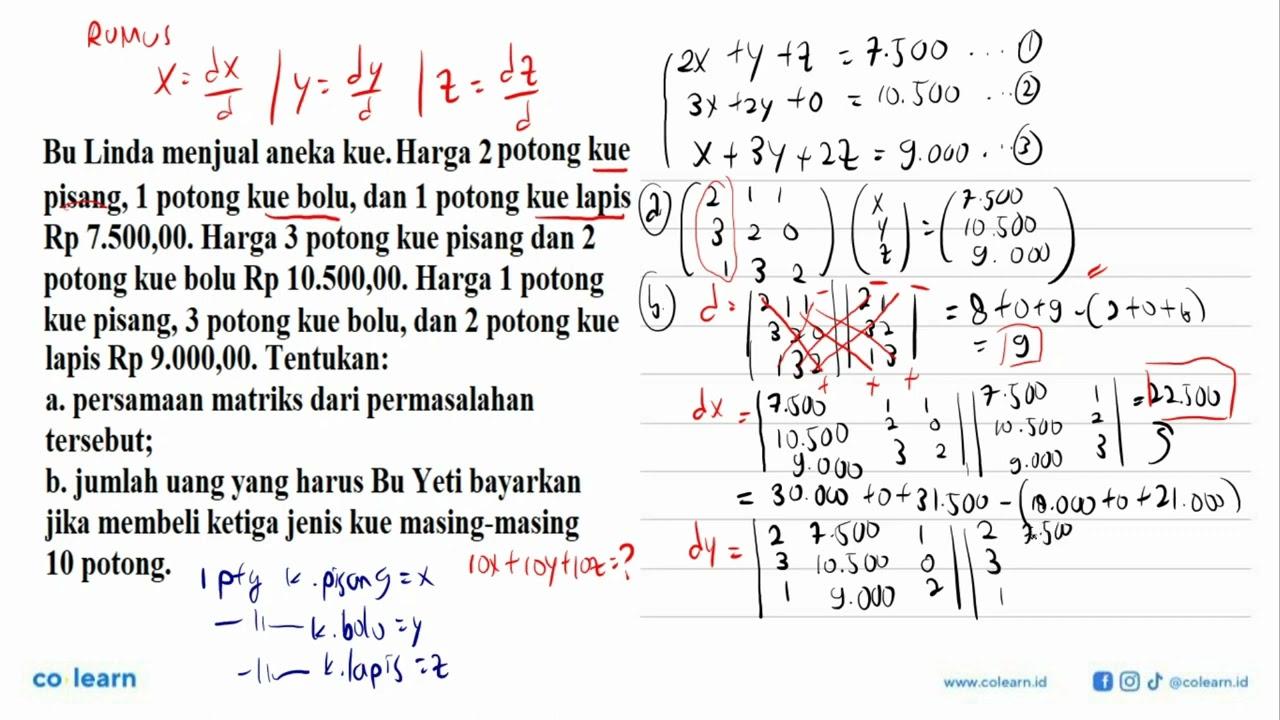 RUMUS
x = dx/d | y = dy/d | z = dz/d
Bu Linda menjual aneka kue. Harga 2 potong kue
pisang, 1 potong kue bolu, dan 1 potong kue lapis
Rp 7.500,00. Harga 3 potong kue pisang dan 2
potong kue bolu Rp 10.500,00. Harga 1 potong
kue pisang, 3 potong kue bolu, dan 2 potong kue
lapis Rp 9.000,00. Tentukan:
a. persamaan matriks dari permasalahan
tersebut;
b. jumlah uang yang harus Bu Yeti bayarkan
jika membeli ketiga jenis kue masing-masing
10 potong.
10x+10y+10z=?
1 ptg k. pisang = x
-11- k. bolu = y
-11- k. lapis = z
2x + y + z = 7.500 ... ①
3x + 2y + 0 = 10.500 ... ②
x + 3y + 2z = 9.000 ... ③
a) 2 1 1 x 7.500
3 2 0 y = 10.500
1 3 2 z 9.000
b. d = | 2 1 1 | | 2 1 | = 8 + 0 + 9 - (2 + 0 + 6)
3 2 0 3 2 = 9
1 3 2 1 3
dx = | 7.500 1 1 | | 7.500 1 | = 22.500
10.500 2 0 10.500 2
9.000 3 2 9.000 3
= 30.000 + 0 + 31.500 - (18.000 + 0 + 21.000)
dy = | 2 7.500 1 | | 2 7.500
3 10.500 0 3
1 9.000 2 1
co·learn
www.colearn.id
@colearn.id